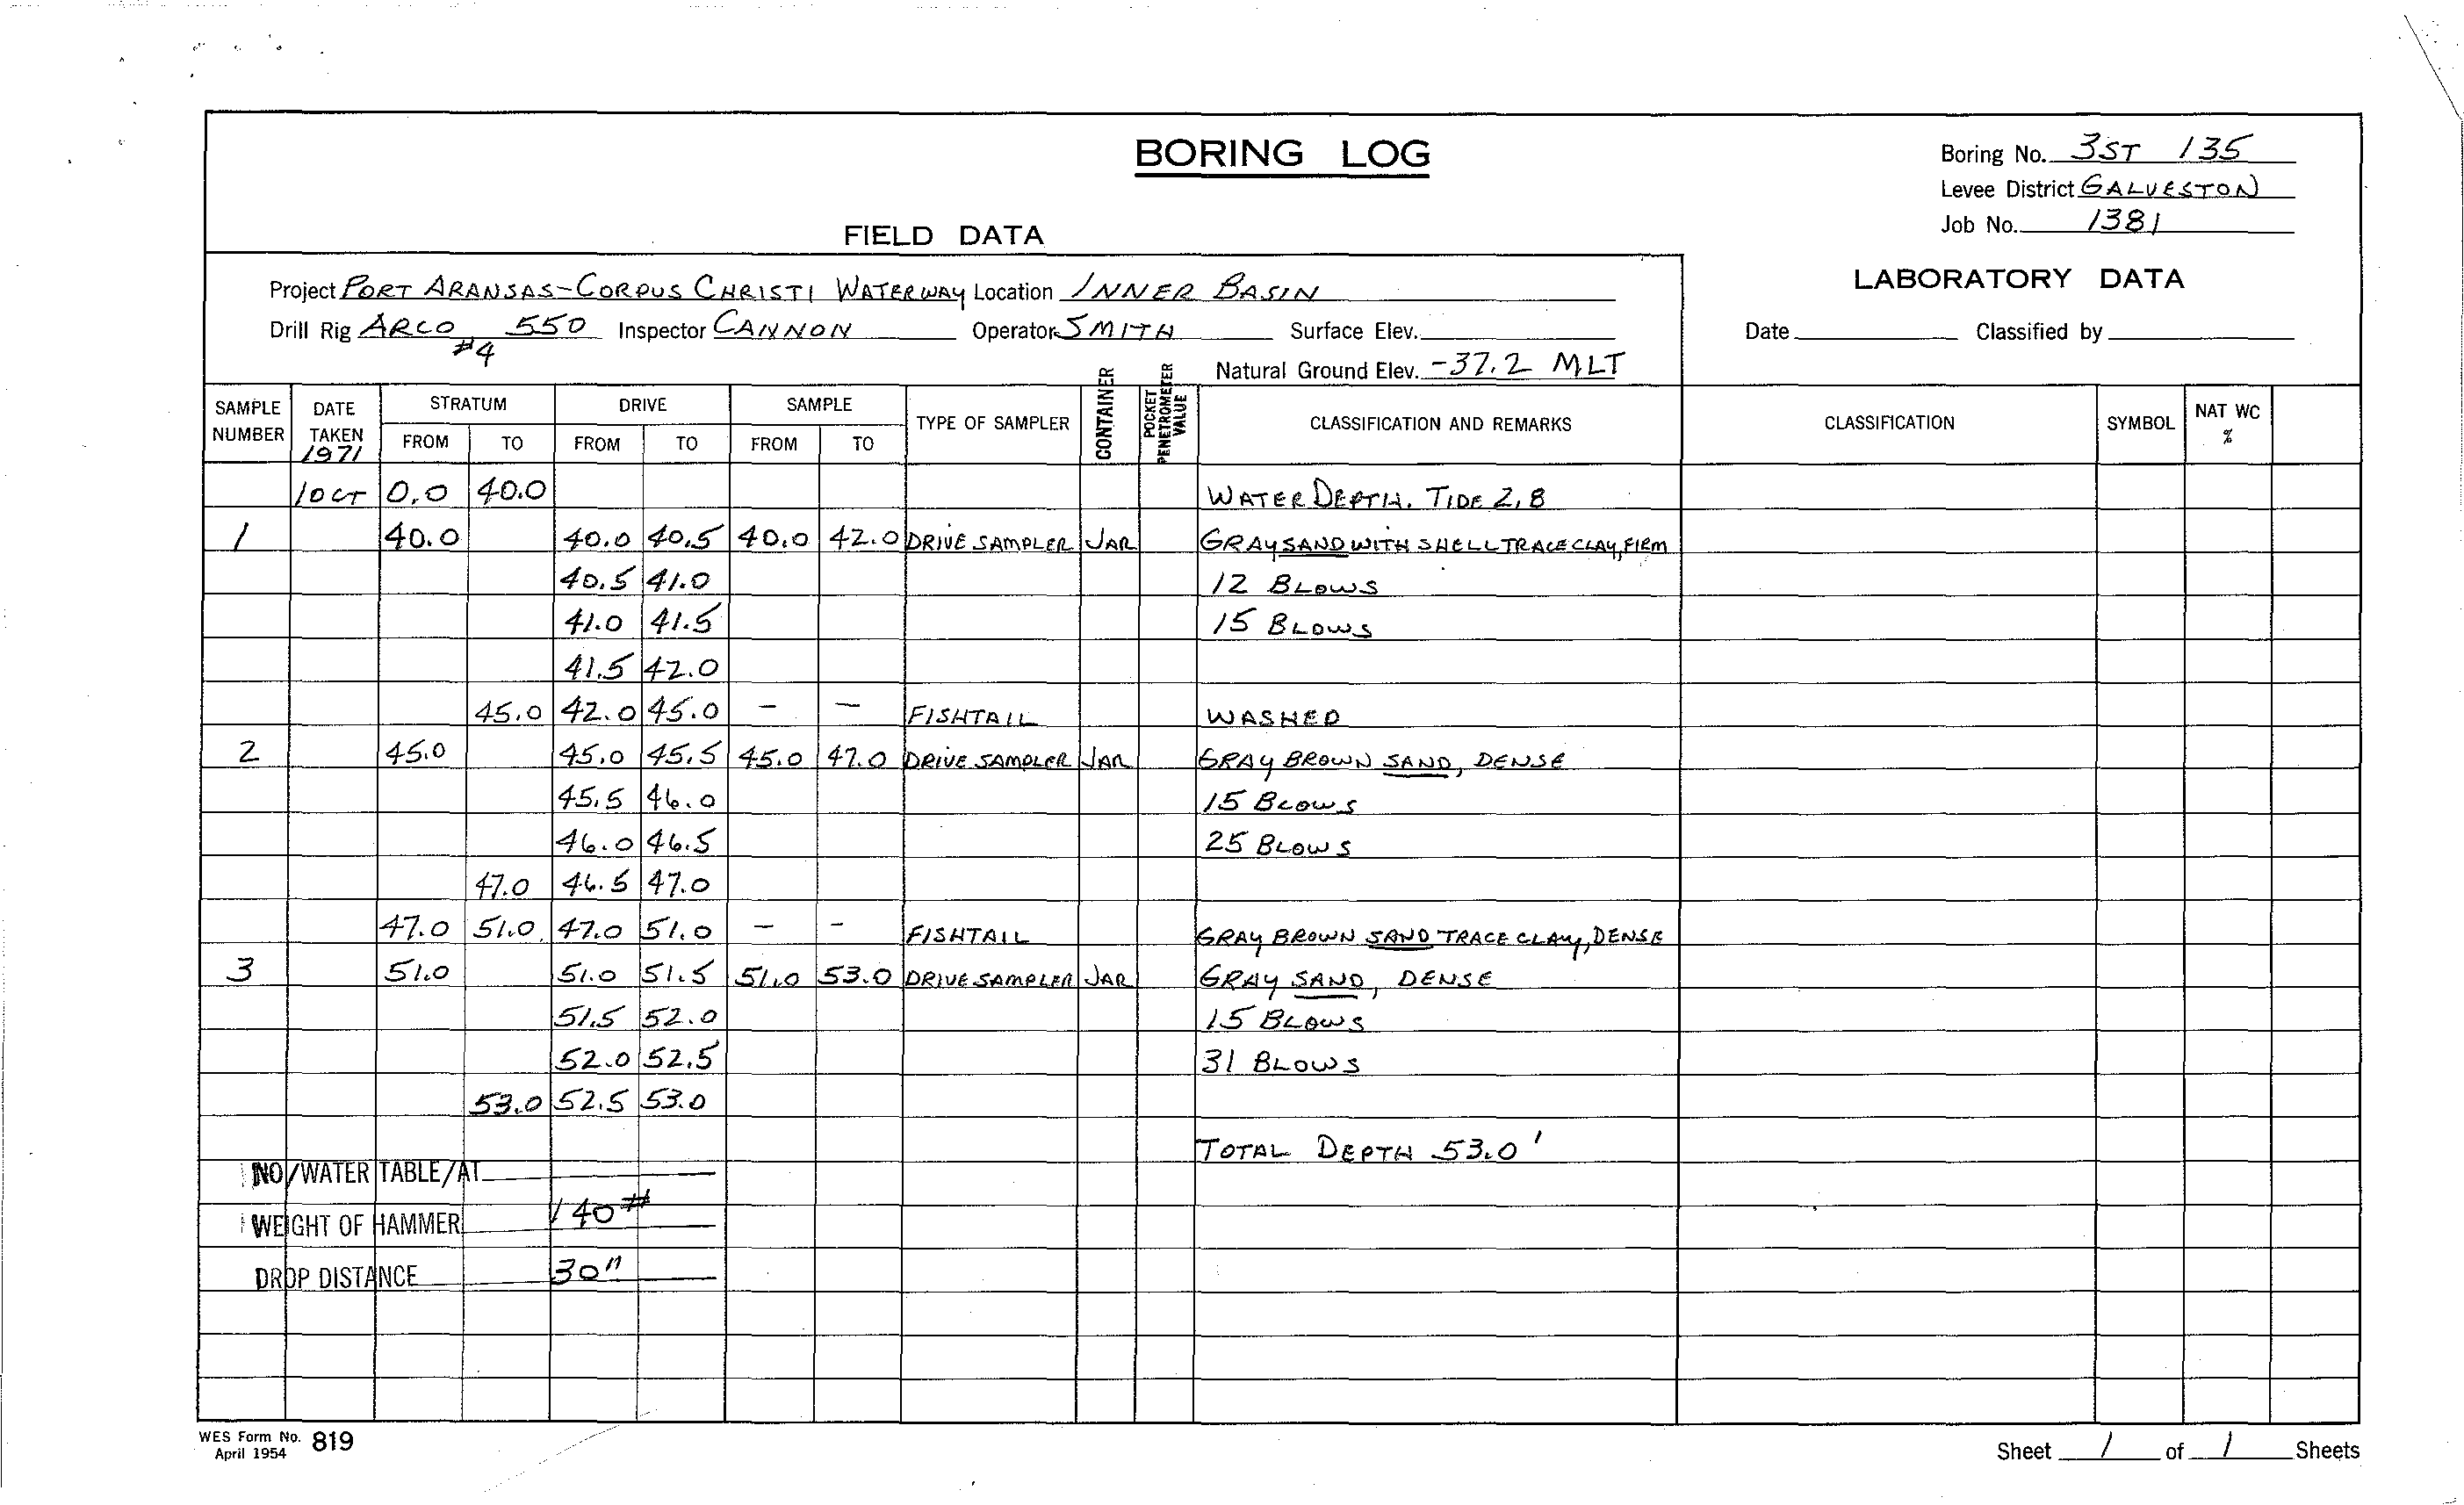 BORING LOG
Boring No. 3ST 135
Levee District GALVESTON
Job No. 1381
FIELD DATA
LABORATORY DATA
Project PORT ARANSAS-CORPUS CHRISTI WATERWAY Location INNER BASIN
Drill Rig ARCO #4 550 Inspector CANNON Operator SMITH Surface Elev. Date Classified by
Natural Ground Elev. -37.2 MLT
SAMPLE NUMBER DATE TAKEN 1971 STRATUM FROM TO DRIVE FROM TO SAMPLE FROM TO TYPE OF SAMPLER CONTAINER POCKET PENETROMETER VALUE CLASSIFICATION AND REMARKS CLASSIFICATION SYMBOL NAT WC %
1 OCT 0.0 40.0 WATER DEPTH. TIDE 2.8
1 40.0 40.0 40.5 40.0 42.0 DRIVE SAMPLER JAR GRAY SAND WITH SHELL TRACE CLAY, FIRM
40.5 41.0 12 BLOWS
41.0 41.5 15 BLOWS
41.5 42.0
45.0 42.0 45.0 - - FISHTAIL WASHED
2 45.0 45.0 45.5 45.0 47.0 DRIVE SAMPLER JAR GRAY BROWN SAND, DENSE
45.5 46.0 15 BLOWS
46.0 46.5 25 BLOWS
47.0 46.5 47.0
47.0 51.0 47.0 51.0 - - FISHTAIL GRAY BROWN SAND TRACE CLAY, DENSE
3 51.0 51.0 51.5 51.0 53.0 DRIVE SAMPLER JAR GRAY SAND, DENSE
51.5 52.0 15 BLOWS
52.0 52.5 31 BLOWS
53.0 52.5 53.0
TOTAL DEPTH 53.0'
NO/WATER TABLE/AT
WEIGHT OF HAMMER 140#
DROP DISTANCE 30"
WES Form No. 819
April 1954
Sheet 1 of 1 Sheets